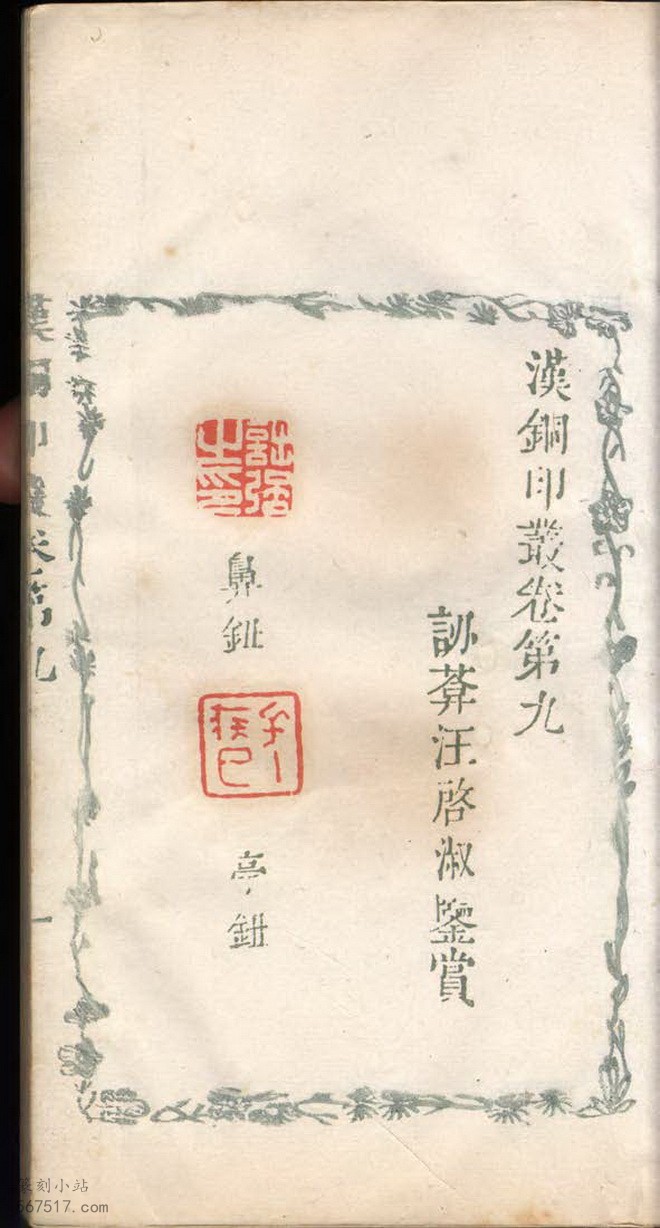 漢銅印叢卷第九
訒葊汪啓淑鑒賞
之印
鼻鈕
亭鈕
漢銅印叢卷第九
一
篆刻小站
67517.com